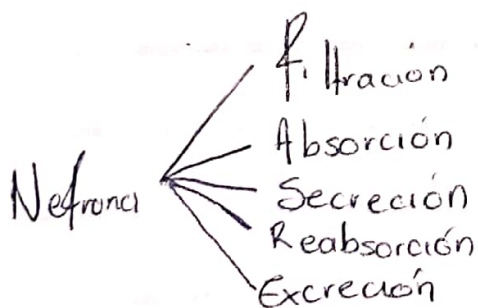 Nefrona
Filtración
Absorción
Secreción
Reabsorción
Excreción